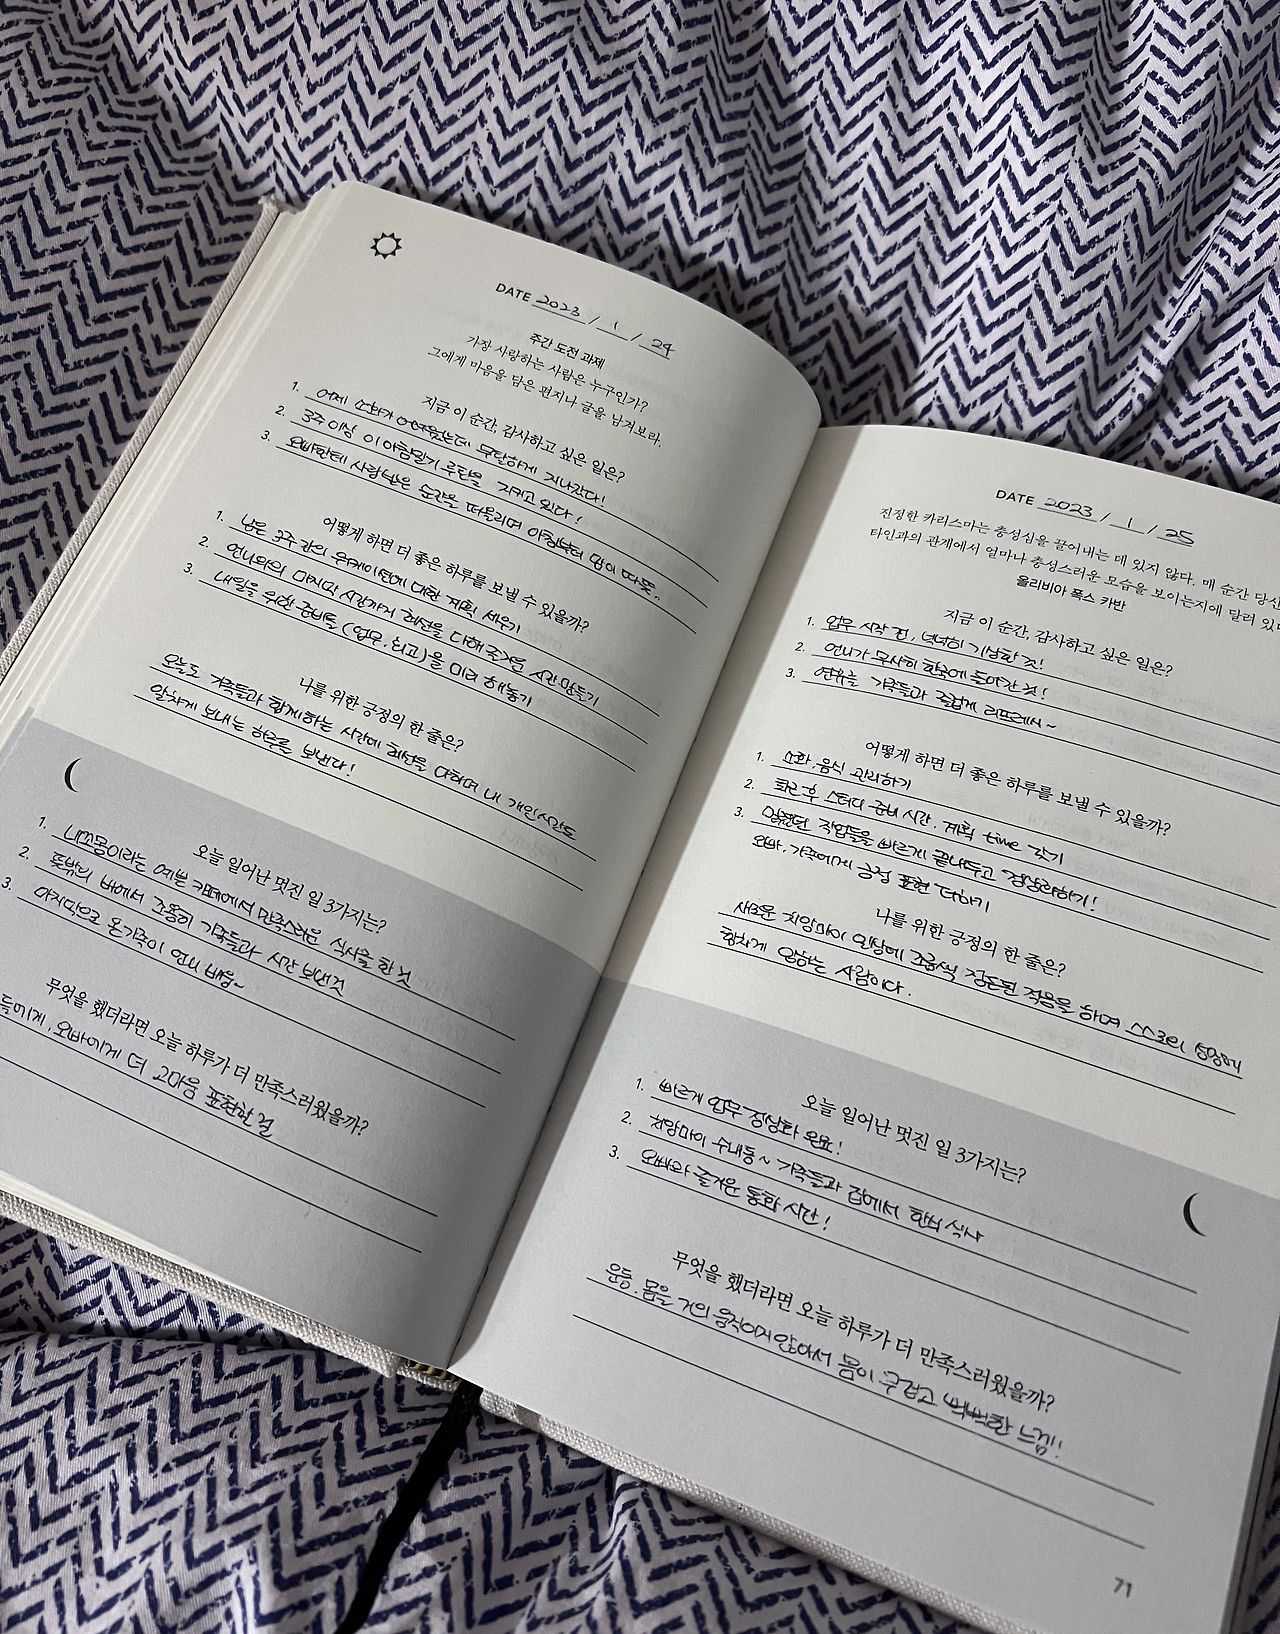 DATE 2023 / 1 / 24
주간 도전 과제
가장 사랑하는 사람은 누구인가?
그에게 마음을 담은 편지나 글을 남겨보라.
지금 이 순간, 감사하고 싶은 일은?
1. 어제 소화가 어려웠는데 무탈하게 지나갔다!
2. 3주 이상 이 아침일기 루틴을 지키고 있다!
3. 오빠한테 사랑받은 순간을 떠올리며 아침부터 맘이 따뜻..
어떻게 하면 더 좋은 하루를 보낼 수 있을까?
1. 남은 3주 간의 워케이션에 대한 계획 세우기
2. 언니와의 마지막 시간까지 최선을 다해 즐거운 시간 만들기
3. 내일을 위한 준비들 (업무, 회고)을 미리 해놓기
나를 위한 긍정의 한 줄은?
오늘도 가족들과 함께하는 시간에 최선을 다하며 내 개인시간도
알차게 보내는 하루를 보낸다!
오늘 일어난 멋진 일 3가지는?
1. 니쪼몽이라는 예쁜 카페에서 만족스러운 식사를 한 것
2. 뜻밖의 배에서 조용히 가족들과 시간 보낸것
3. 마지막으로 온가족이 언니 배웅~
무엇을 했더라면 오늘 하루가 더 만족스러웠을까?
들에게, 오빠에게 더 고마움 표현한 걸
DATE 2023 / 1 / 25
진정한 카리스마는 충성심을 끌어내는 데 있지 않다. 매 순간 당신
타인과의 관계에서 얼마나 충성스러운 모습을 보이는지에 달려 있다
올리비아 폭스 카반
지금 이 순간, 감사하고 싶은 일은?
1. 업무 시작 전, 넉넉히 기상한 것!
2. 언니가 무사히 한국에 돌아간 것!
3. 연휴를 가족들과 즐겁게 리프레시~
어떻게 하면 더 좋은 하루를 보낼 수 있을까?
1. 소화, 음식 관리하기
2. 퇴근 후 스터디 준비 시간, 계획 time 갖기
3. 밀렸던 작업들을 빠르게 끝내두고 정상화하기!
오빠, 가족에게 긍정 표현 더하기
나를 위한 긍정의 한 줄은?
새로운 치앙마이 일상에 조금씩 정돈된 적응을 하며 스스로의 성장에
힘차게 임하는 사람이다.
오늘 일어난 멋진 일 3가지는?
1. 빠르게 업무 정상화 완료!
2. 치앙마이 수내동~ 가족들과 집에서 한식 식사
3. 오빠와 즐거운 통화 시간!
무엇을 했더라면 오늘 하루가 더 만족스러웠을까?
운동. 몸을 거의 움직이지 않아서 몸이 무겁고 뻑뻑한 느낌!!
71